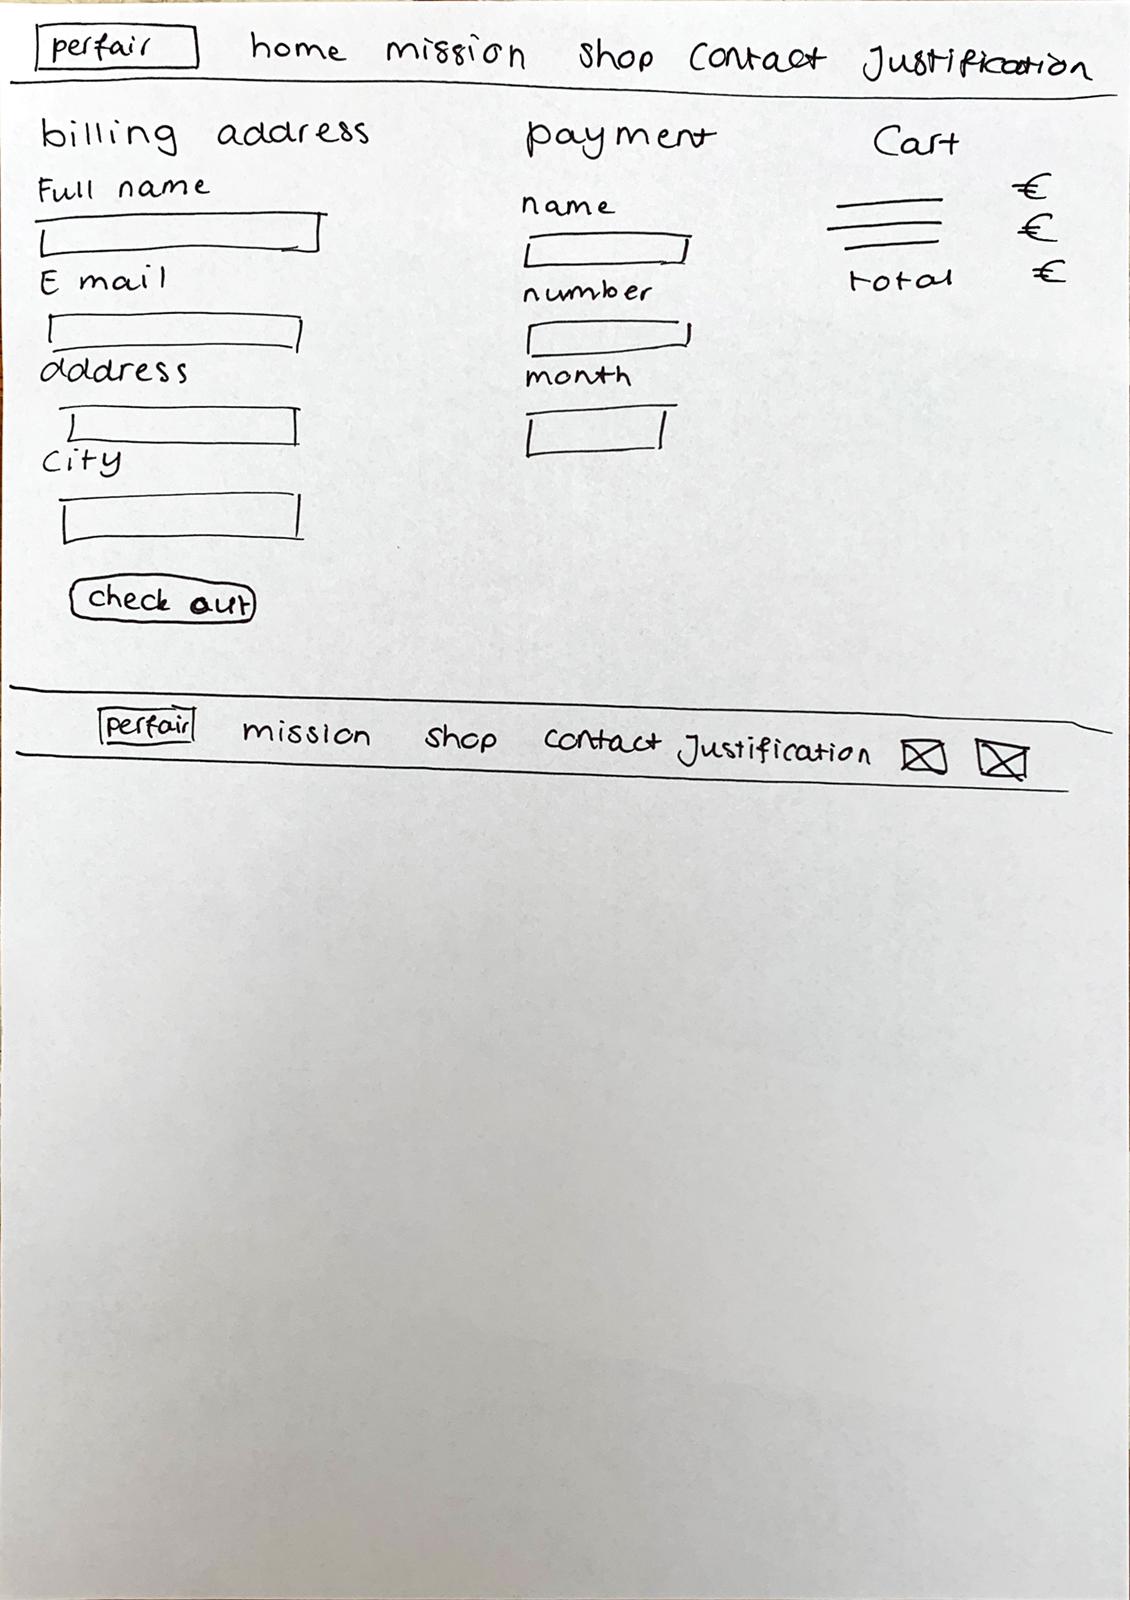 perfair home mission shop contact Justification
billing address
Full name
E mail
address
City
check out
payment
name
number
month
Cart
€
€
total €
perfair mission shop contact Justification